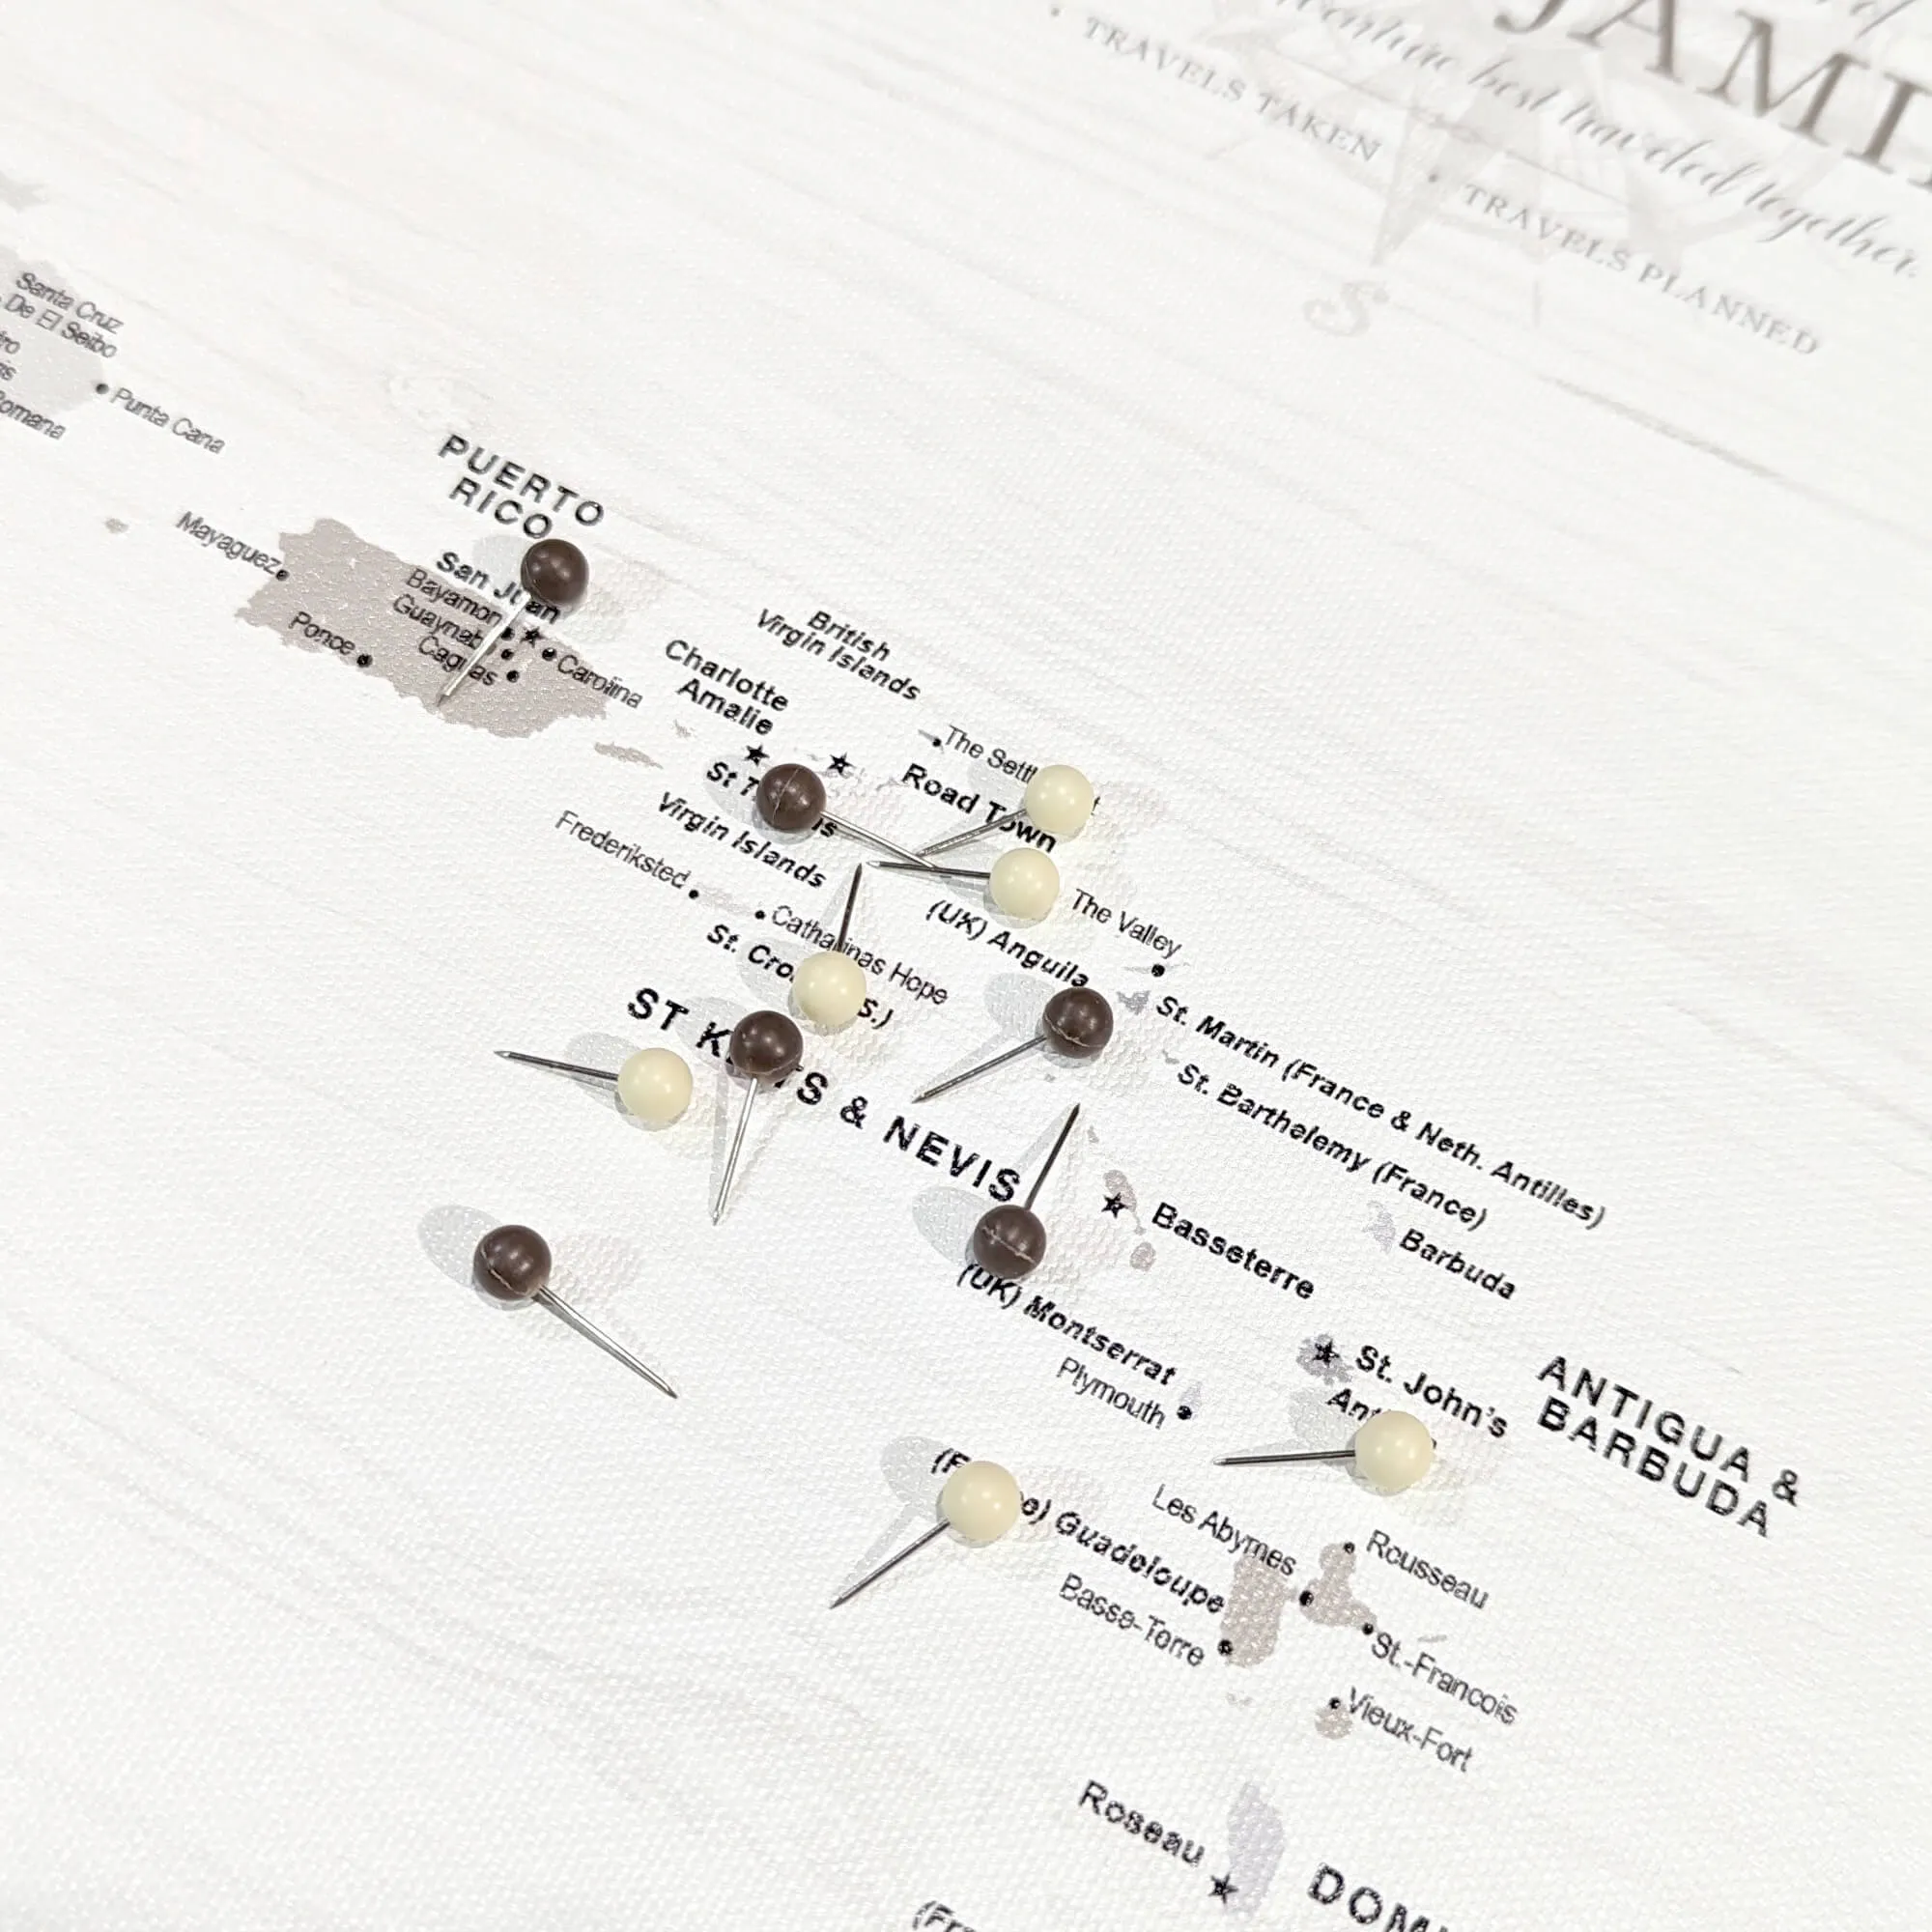 JAMI
best traveled together
TRAVELS TAKEN
TRAVELS PLANNED
S
Santa Cruz
De El Seibo
Punta Cana
PUERTO
RICO
Mayaguez
San Juan
Bayamon
Guaynabo
Caguas
Ponce
Carolina
British
Virgin Islands
Charlotte
Amalie
The Settl t
Road Town
St T
Virgin Islands
Frederiksted
Catharinas Hope
St. Cro S.)
(UK) Anguila
The Valley
St. Martin (France & Neth. Antilles)
St. Barthelemy (France)
ST K TS & NEVIS
Basseterre
Barbuda
(UK) Montserrat
Plymouth
St. John's
Ant
ANTIGUA &
BARBUDA
(F e) Guadeloupe
Les Abymes
Rousseau
Basse-Terre
St.-Francois
Vieux-Fort
Roseau
DOM
(Fr